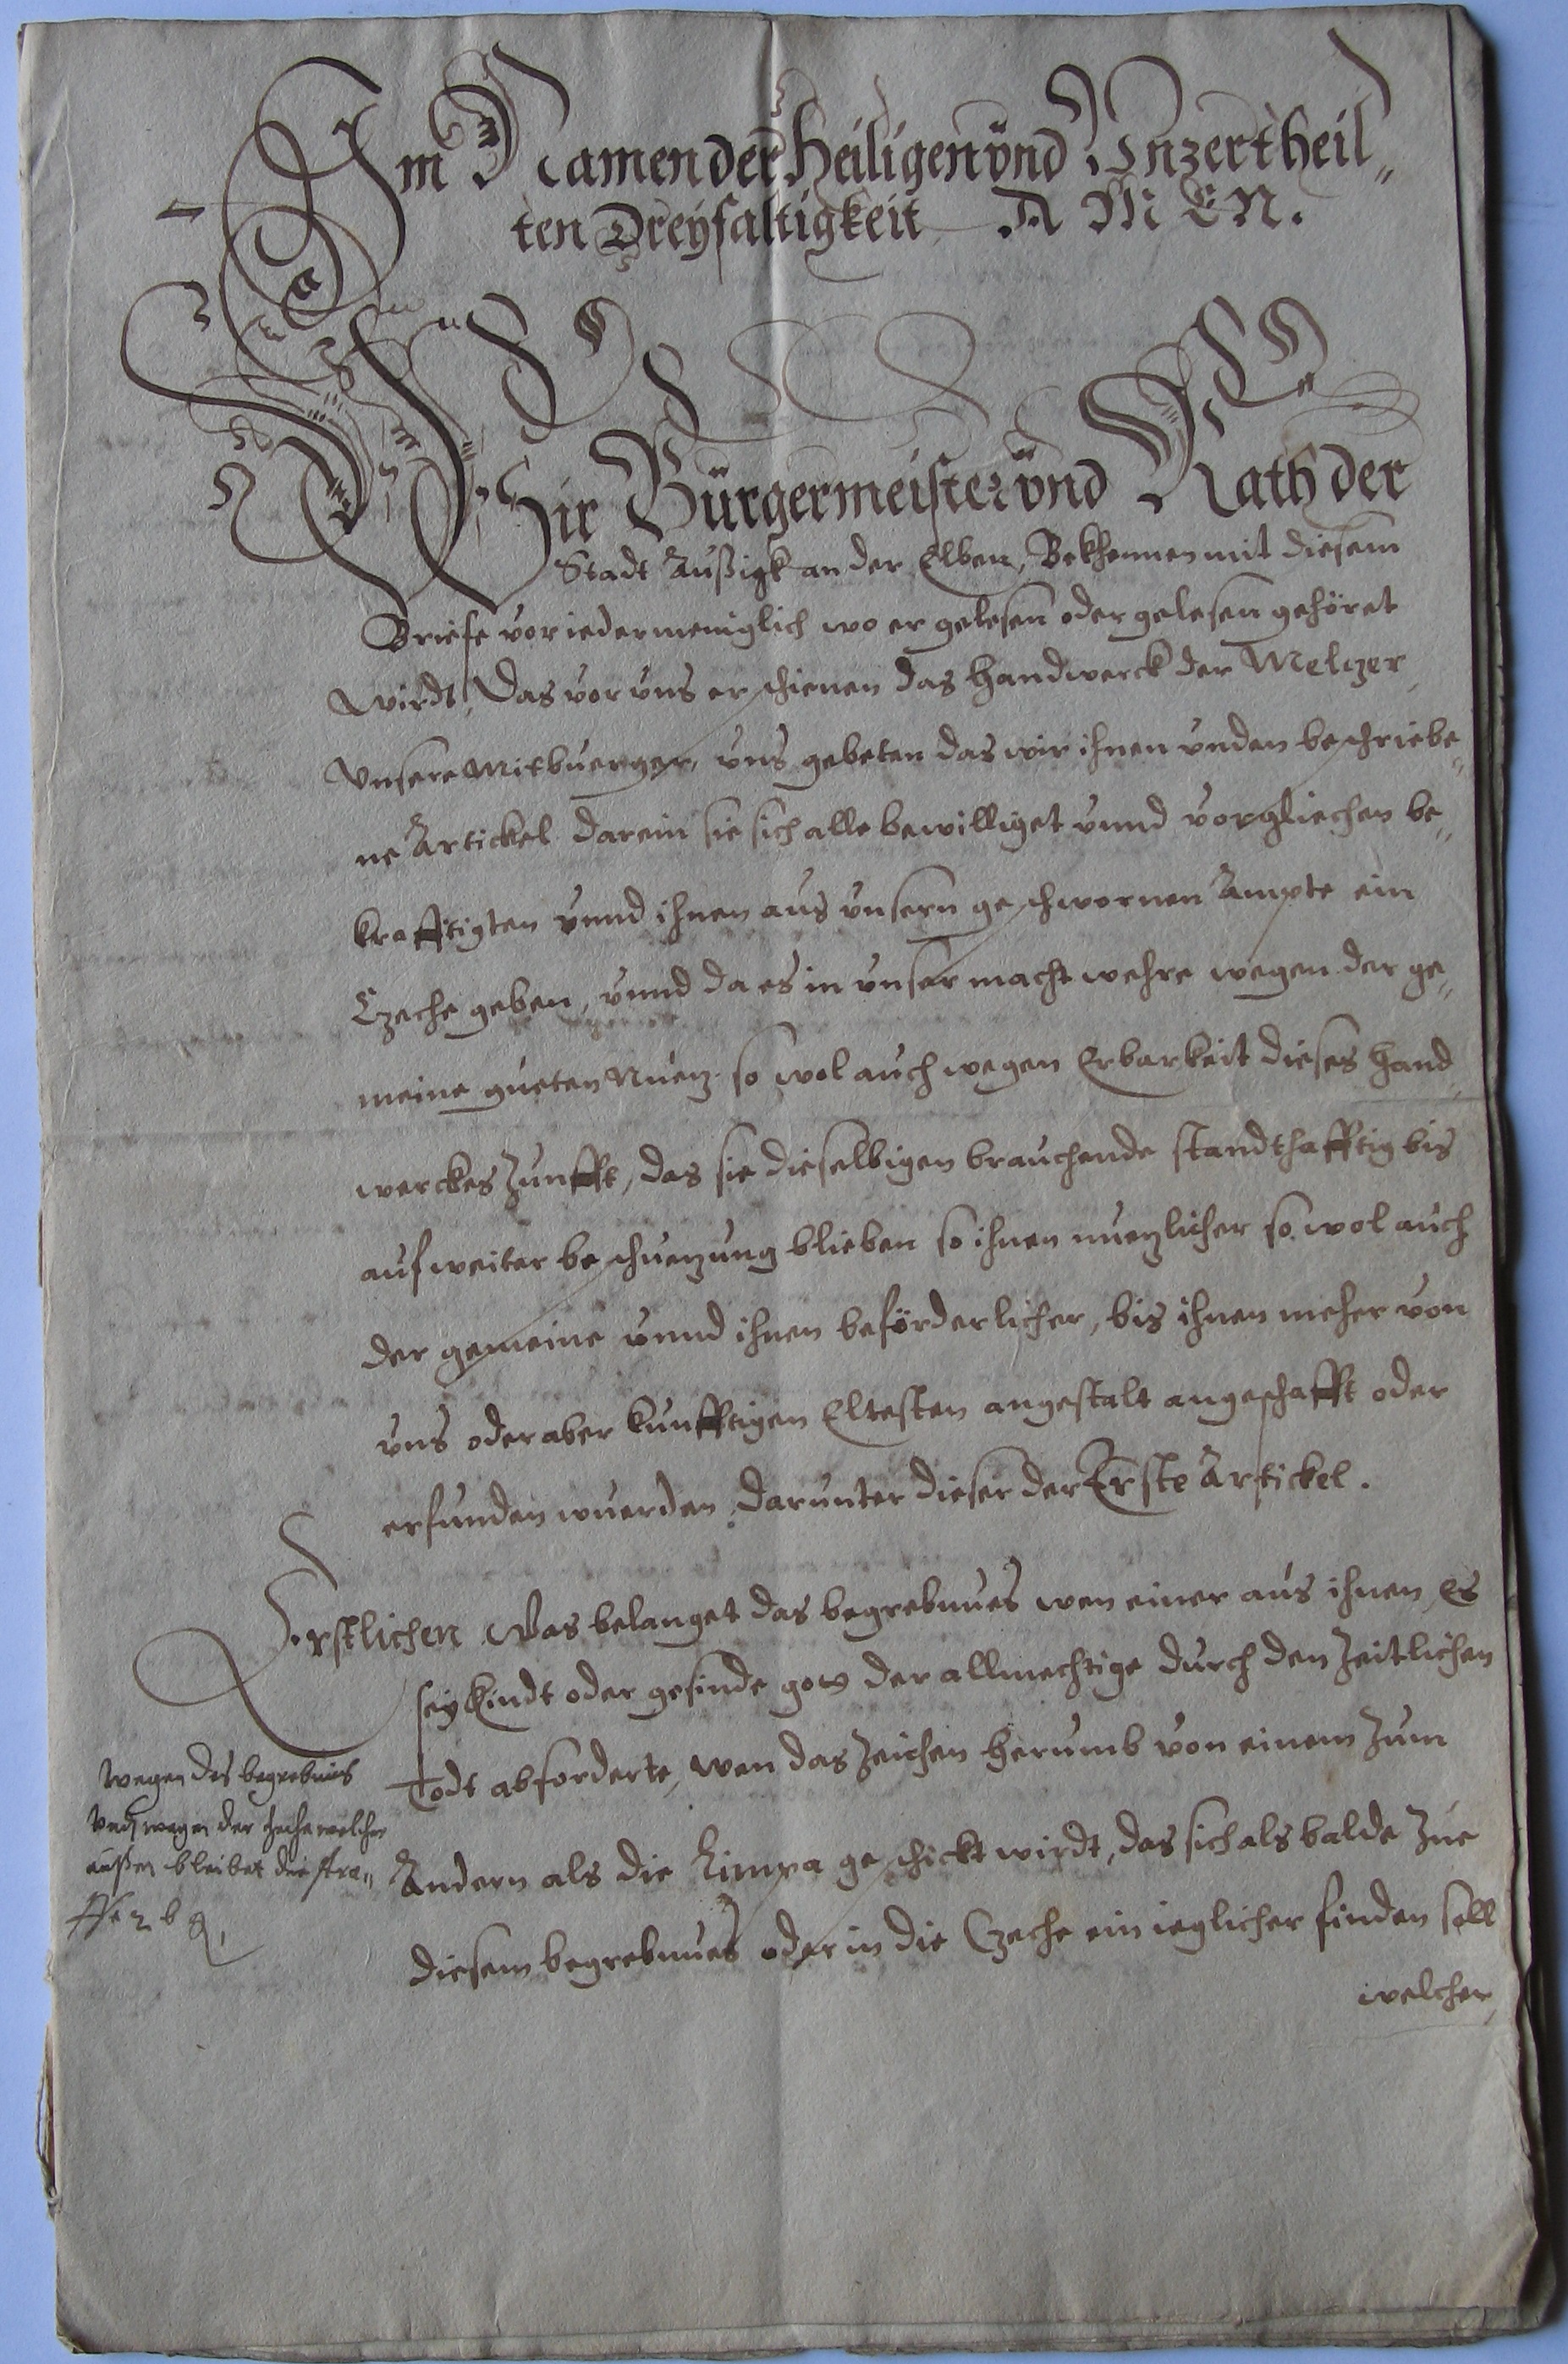 Im Namen der Heiligen ünd Unzertheil„
ten Dreyfaltigkeit AMEN.
Wir Bürgermeister ünd Rath der
Stadt Außigk an der Elben, Bekhennen mit diesem
Briefe vor iedermeniglich wo er gelesen oder gelesen gehöret
wirdt, Das vor uns erschienen das Handwerck der Melczer
Unsere Mitbuerger, uns gebeten das wir ihnen unden beschriebe„
ne Artickel darein sie sich alle bewilliget unnd vorgliechen be„
krafftigten unnd ihnen aus unsern geschwornen Ampte ein
Czeche geben, unnd da es in unser macht wehre wegen der ge„
meine gueten Nuecz so wol auch wegen Erbarkeit dieses Hand„
werckes Zunfft, das sie dieselbigen brauchende standthafftig bis
auf weiter beschueczung blieben so ihnen nueczlicher so wol auch
der gemeine unnd ihnen beförderlicher, bis ihnen meher von
uns oder aber kunfftigen Eltesten angestalt angeschafft oder
erfunden wuerden darunter dieser der Erste Artickel.
Erstlichen Was belanget das begrebnues wen einer aus ihnen, Es
sey Kindt oder gesinde gott der allmechtige durch den Zeitlichen
Todt abforderte, wen das Zeichen herumb von einem Zum
Andern als die Zimpa geschickt wirdt, das sich als balde Zue
diesem begrebnues oder in die Czeche ein ieglicher finden soll
welcher
Wegen des begrebnues
Undt wegen der Zeche welcher
außen bleibet die stra„
ffe 2 b g.